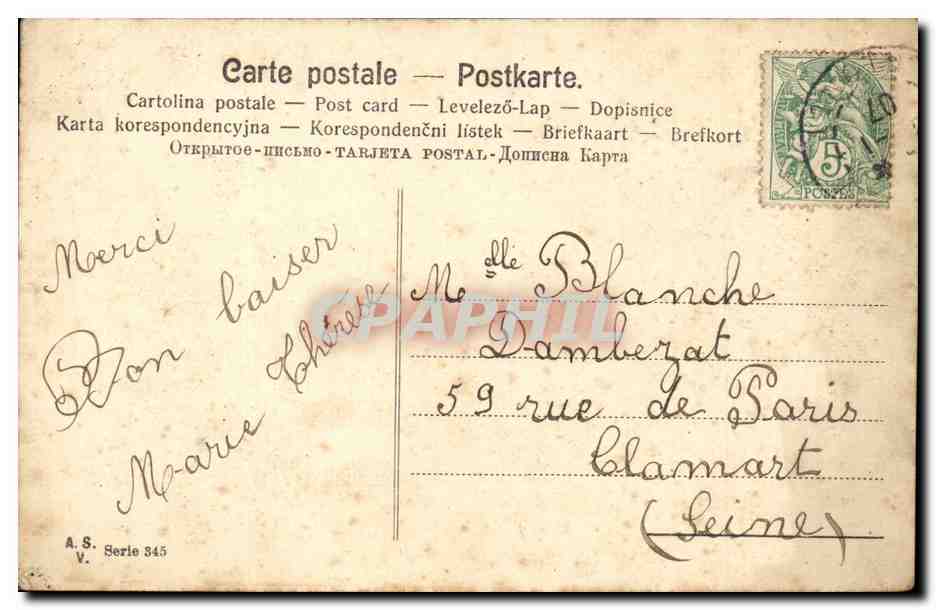 Carte postale — Postkarte.
Cartolina postale — Post card — Levelező-Lap — Dopisnice
Karta korespondencyjna — Korespondenčni lístek — Briefkaart — Brefkort
Открытое-письмо - TARJETA POSTAL - Дописна Карта
Merci
Bon baiser
Marie Thérèse
Mdlle Blanche
Dambezat
59 rue de Paris
Clamart
(Seine)
5
POSTES
07
CPAPHIL
A. S.
V. Serie 345